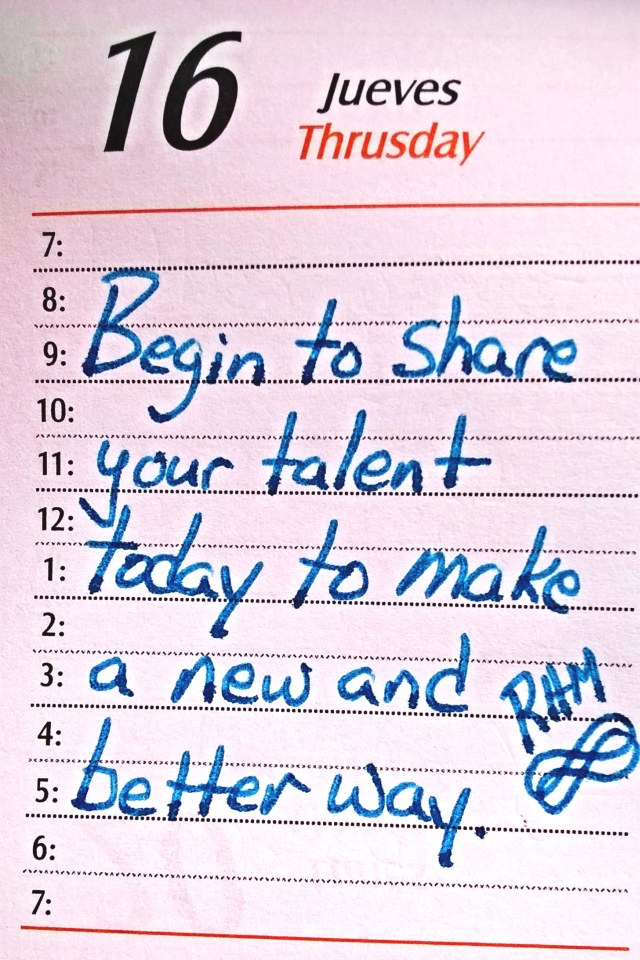 16 Jueves
Thrusday
7:
8:
9: Begin to share
10:
11: your talent
12:
1: today to make
2:
3: a new and RHM
4:
5: better way.
6:
7: